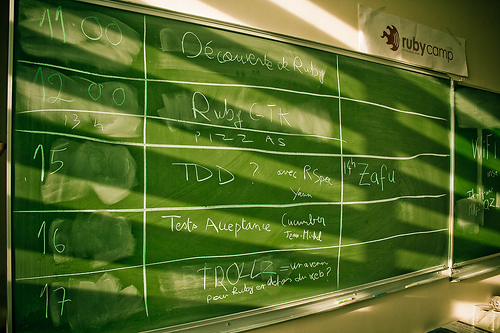 11:00 Découverte de Ruby
12 00 Ruby GTK
13 h PIZZAS
15 TDD ? avec RSpec 14h Zafu
Yann
16 Tests Acceptance Cucumber
17 TROLLZ = un avenir
pour Ruby en dehors du web ?
rubycamp
WiFi